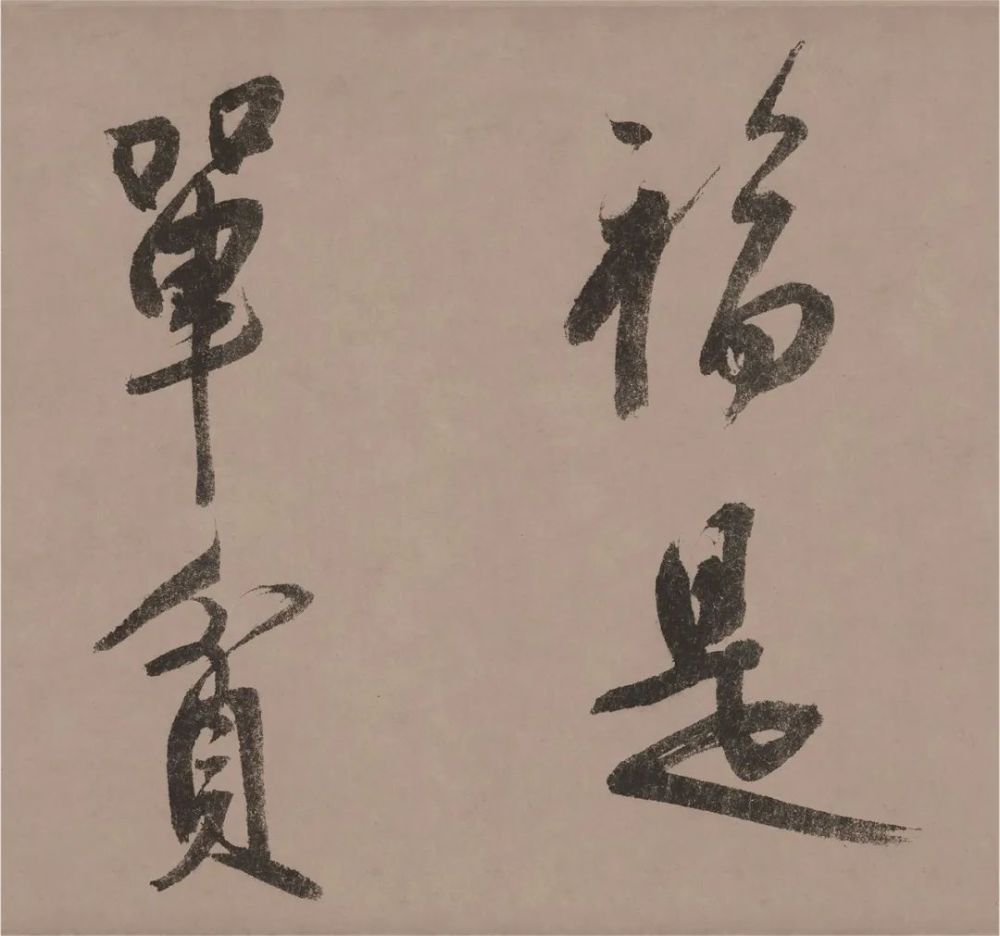 福是
單貧